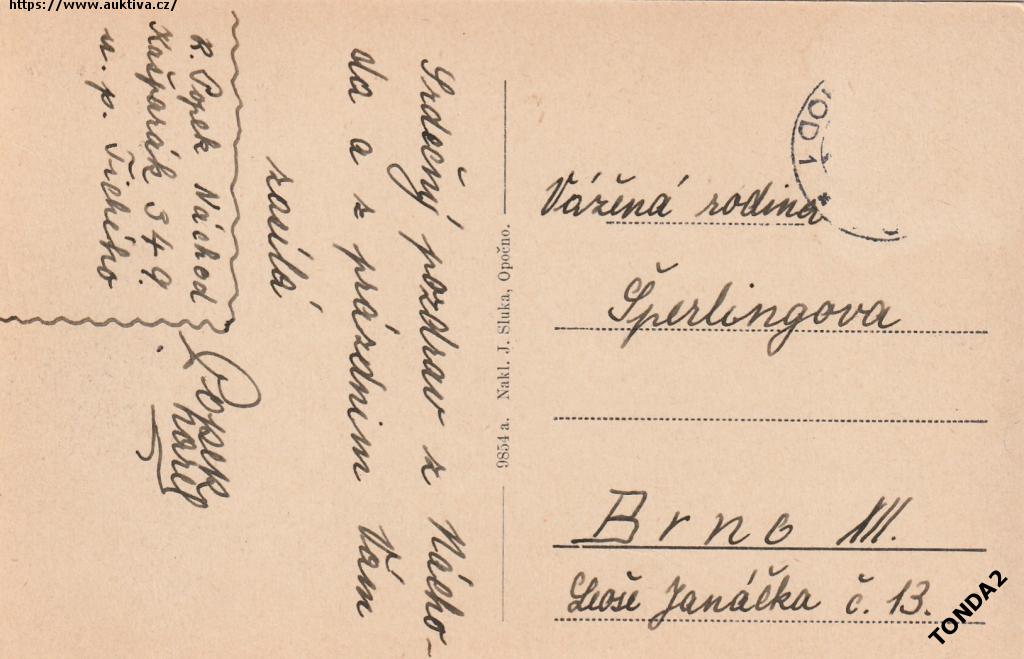 https://www.auktiva.cz/
R. Popek Náchod
Kašparák 349.
u. p. Tichého
Srdečný pozdrav z Nácho-
da a s prázdnim Vám
zasílá
Popek
9854 a. Nakl. J. Sluka, Opočno.
OD 1
Vážená rodina
Šperlingova
Brno III.
Leoše Janáčka č. 13.
TONDA2